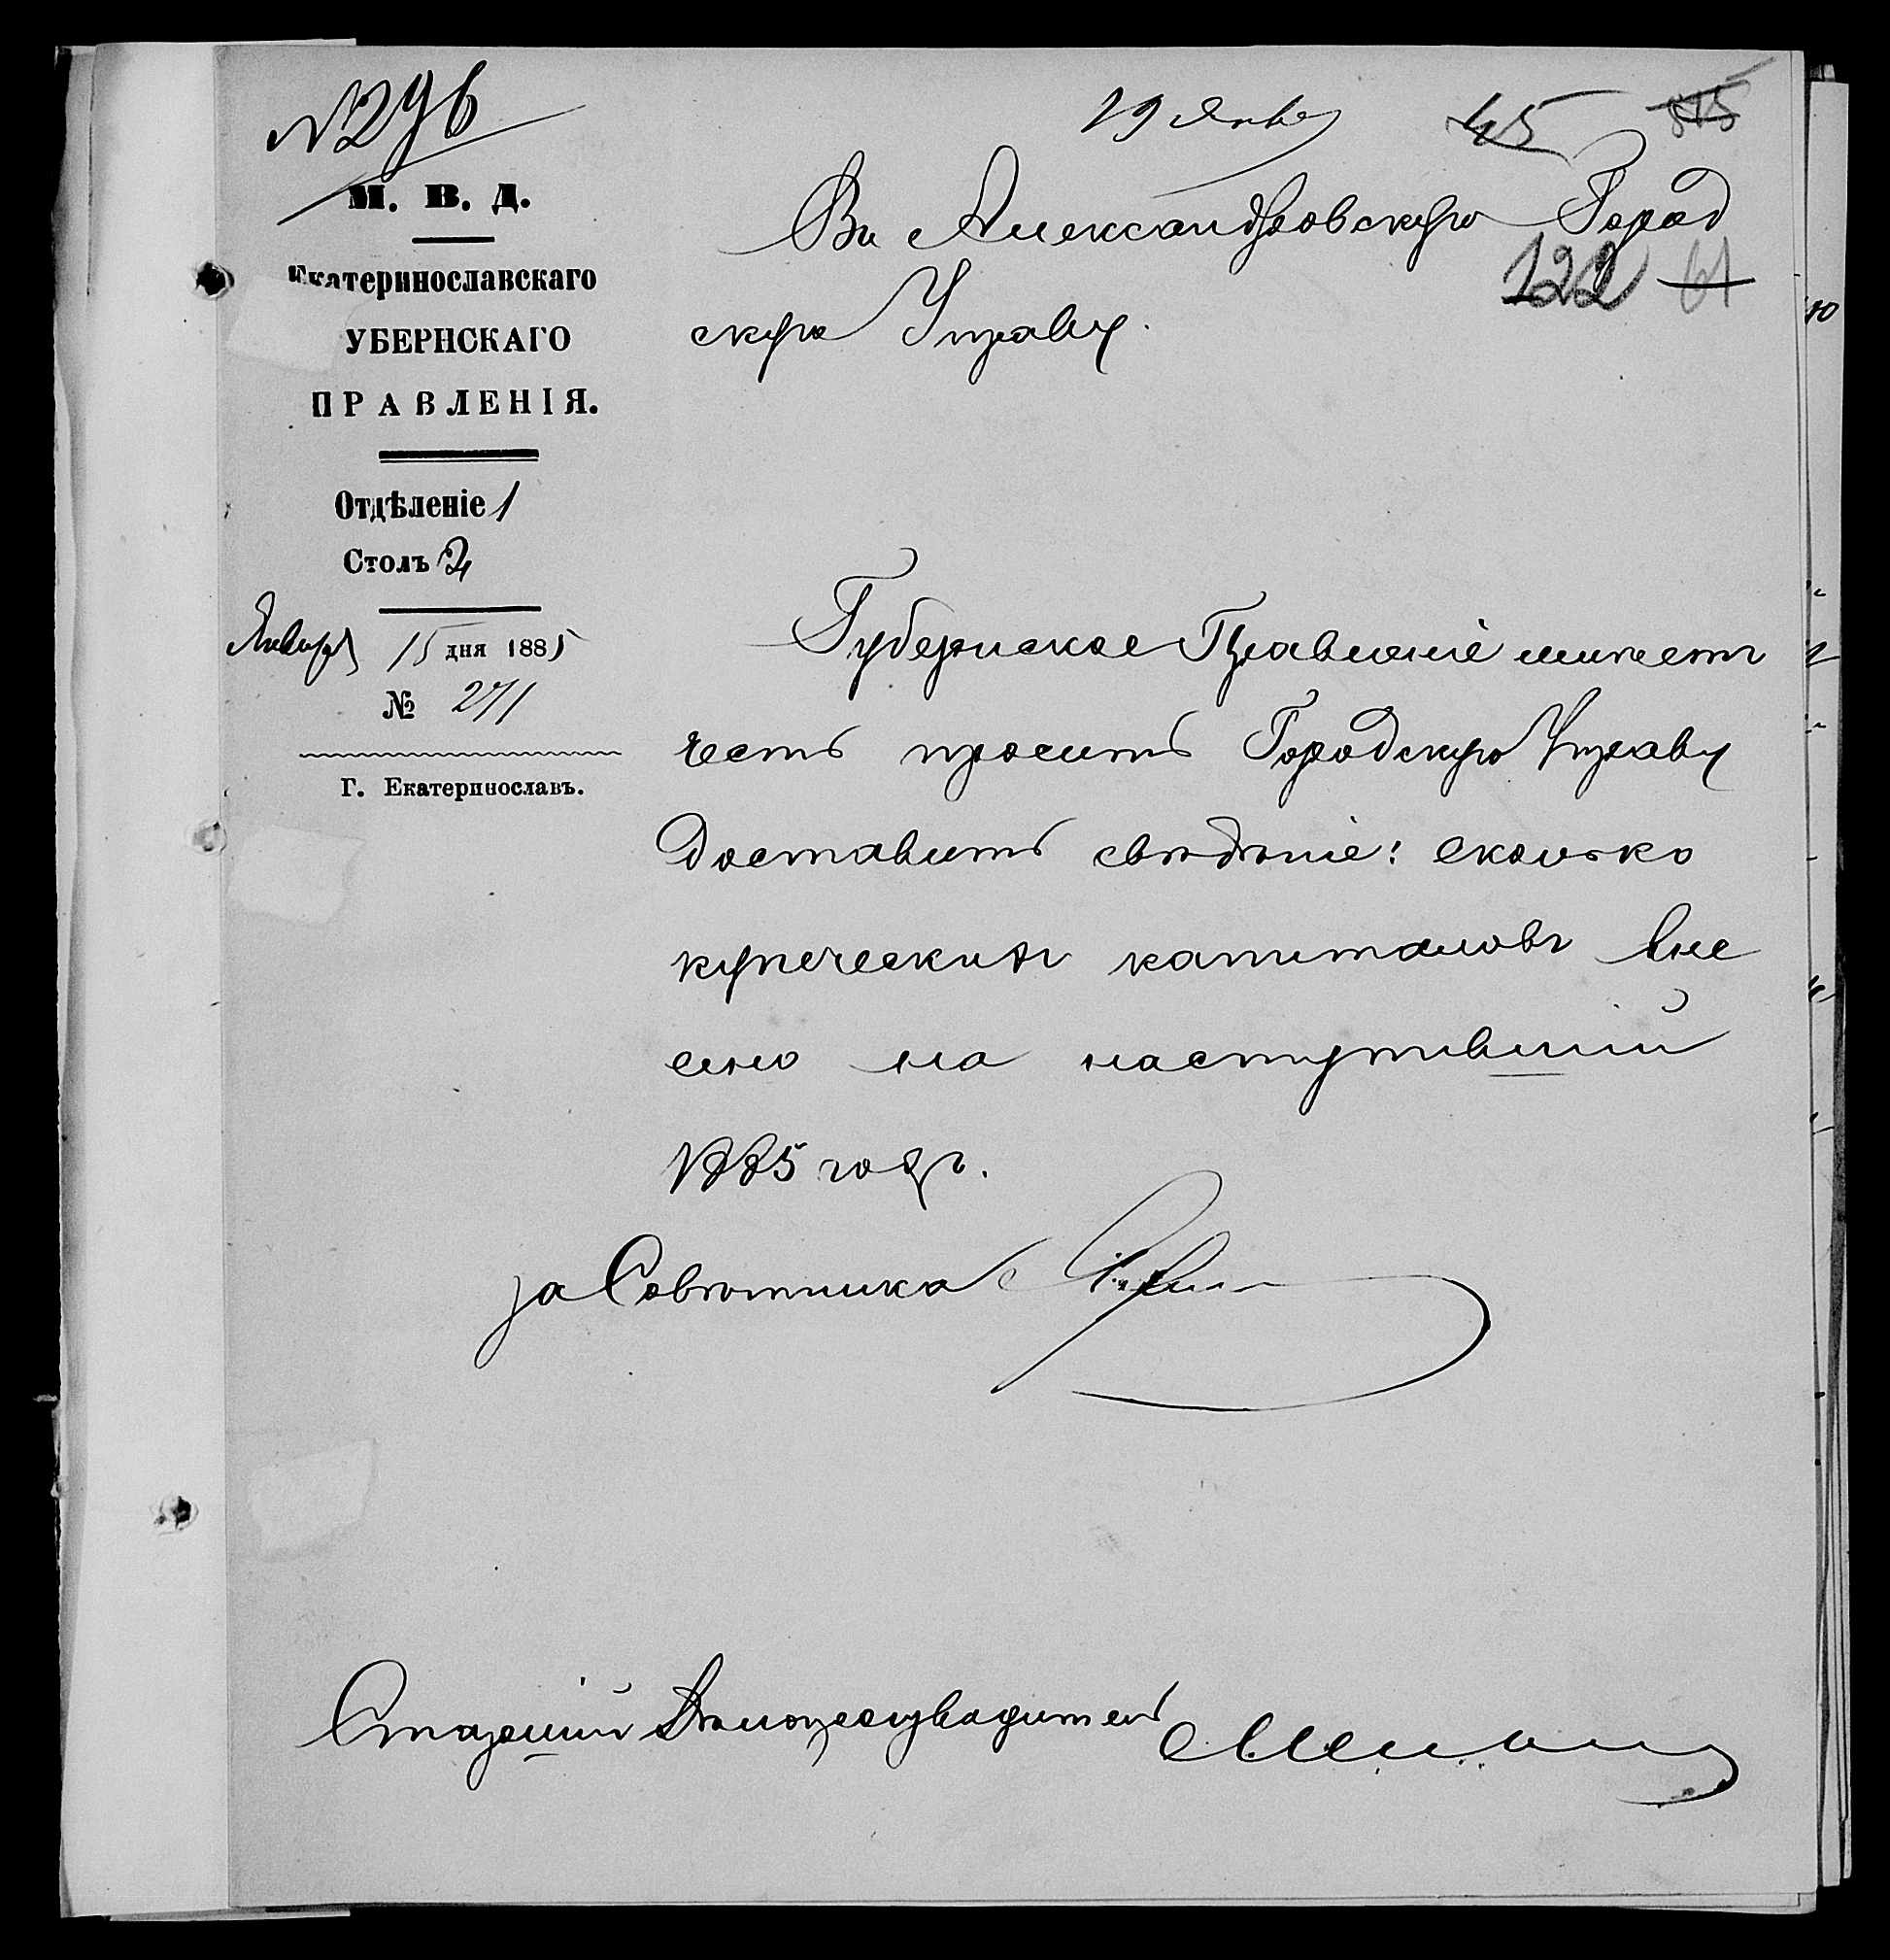 №296
19 Янв
45
515
М. В. Д.
Въ Александровскую Город
122 61
Екатеринославскаго
скую Управу.
УБЕРНСКАГО
ПРАВЛЕНІЯ.
Отдѣленіе 1
Столъ 2
Января 15 дня 1885
№ 271
Г. Екатеринославъ.
Губернское Правленіе имѣетъ
честь просить Городскую Управу
доставить свѣдѣніе: сколько
купеческихъ капиталовъ вне
сено на наступившій
1885 годъ.
за Совѣтника
Старшій Дѣлопроизводитель